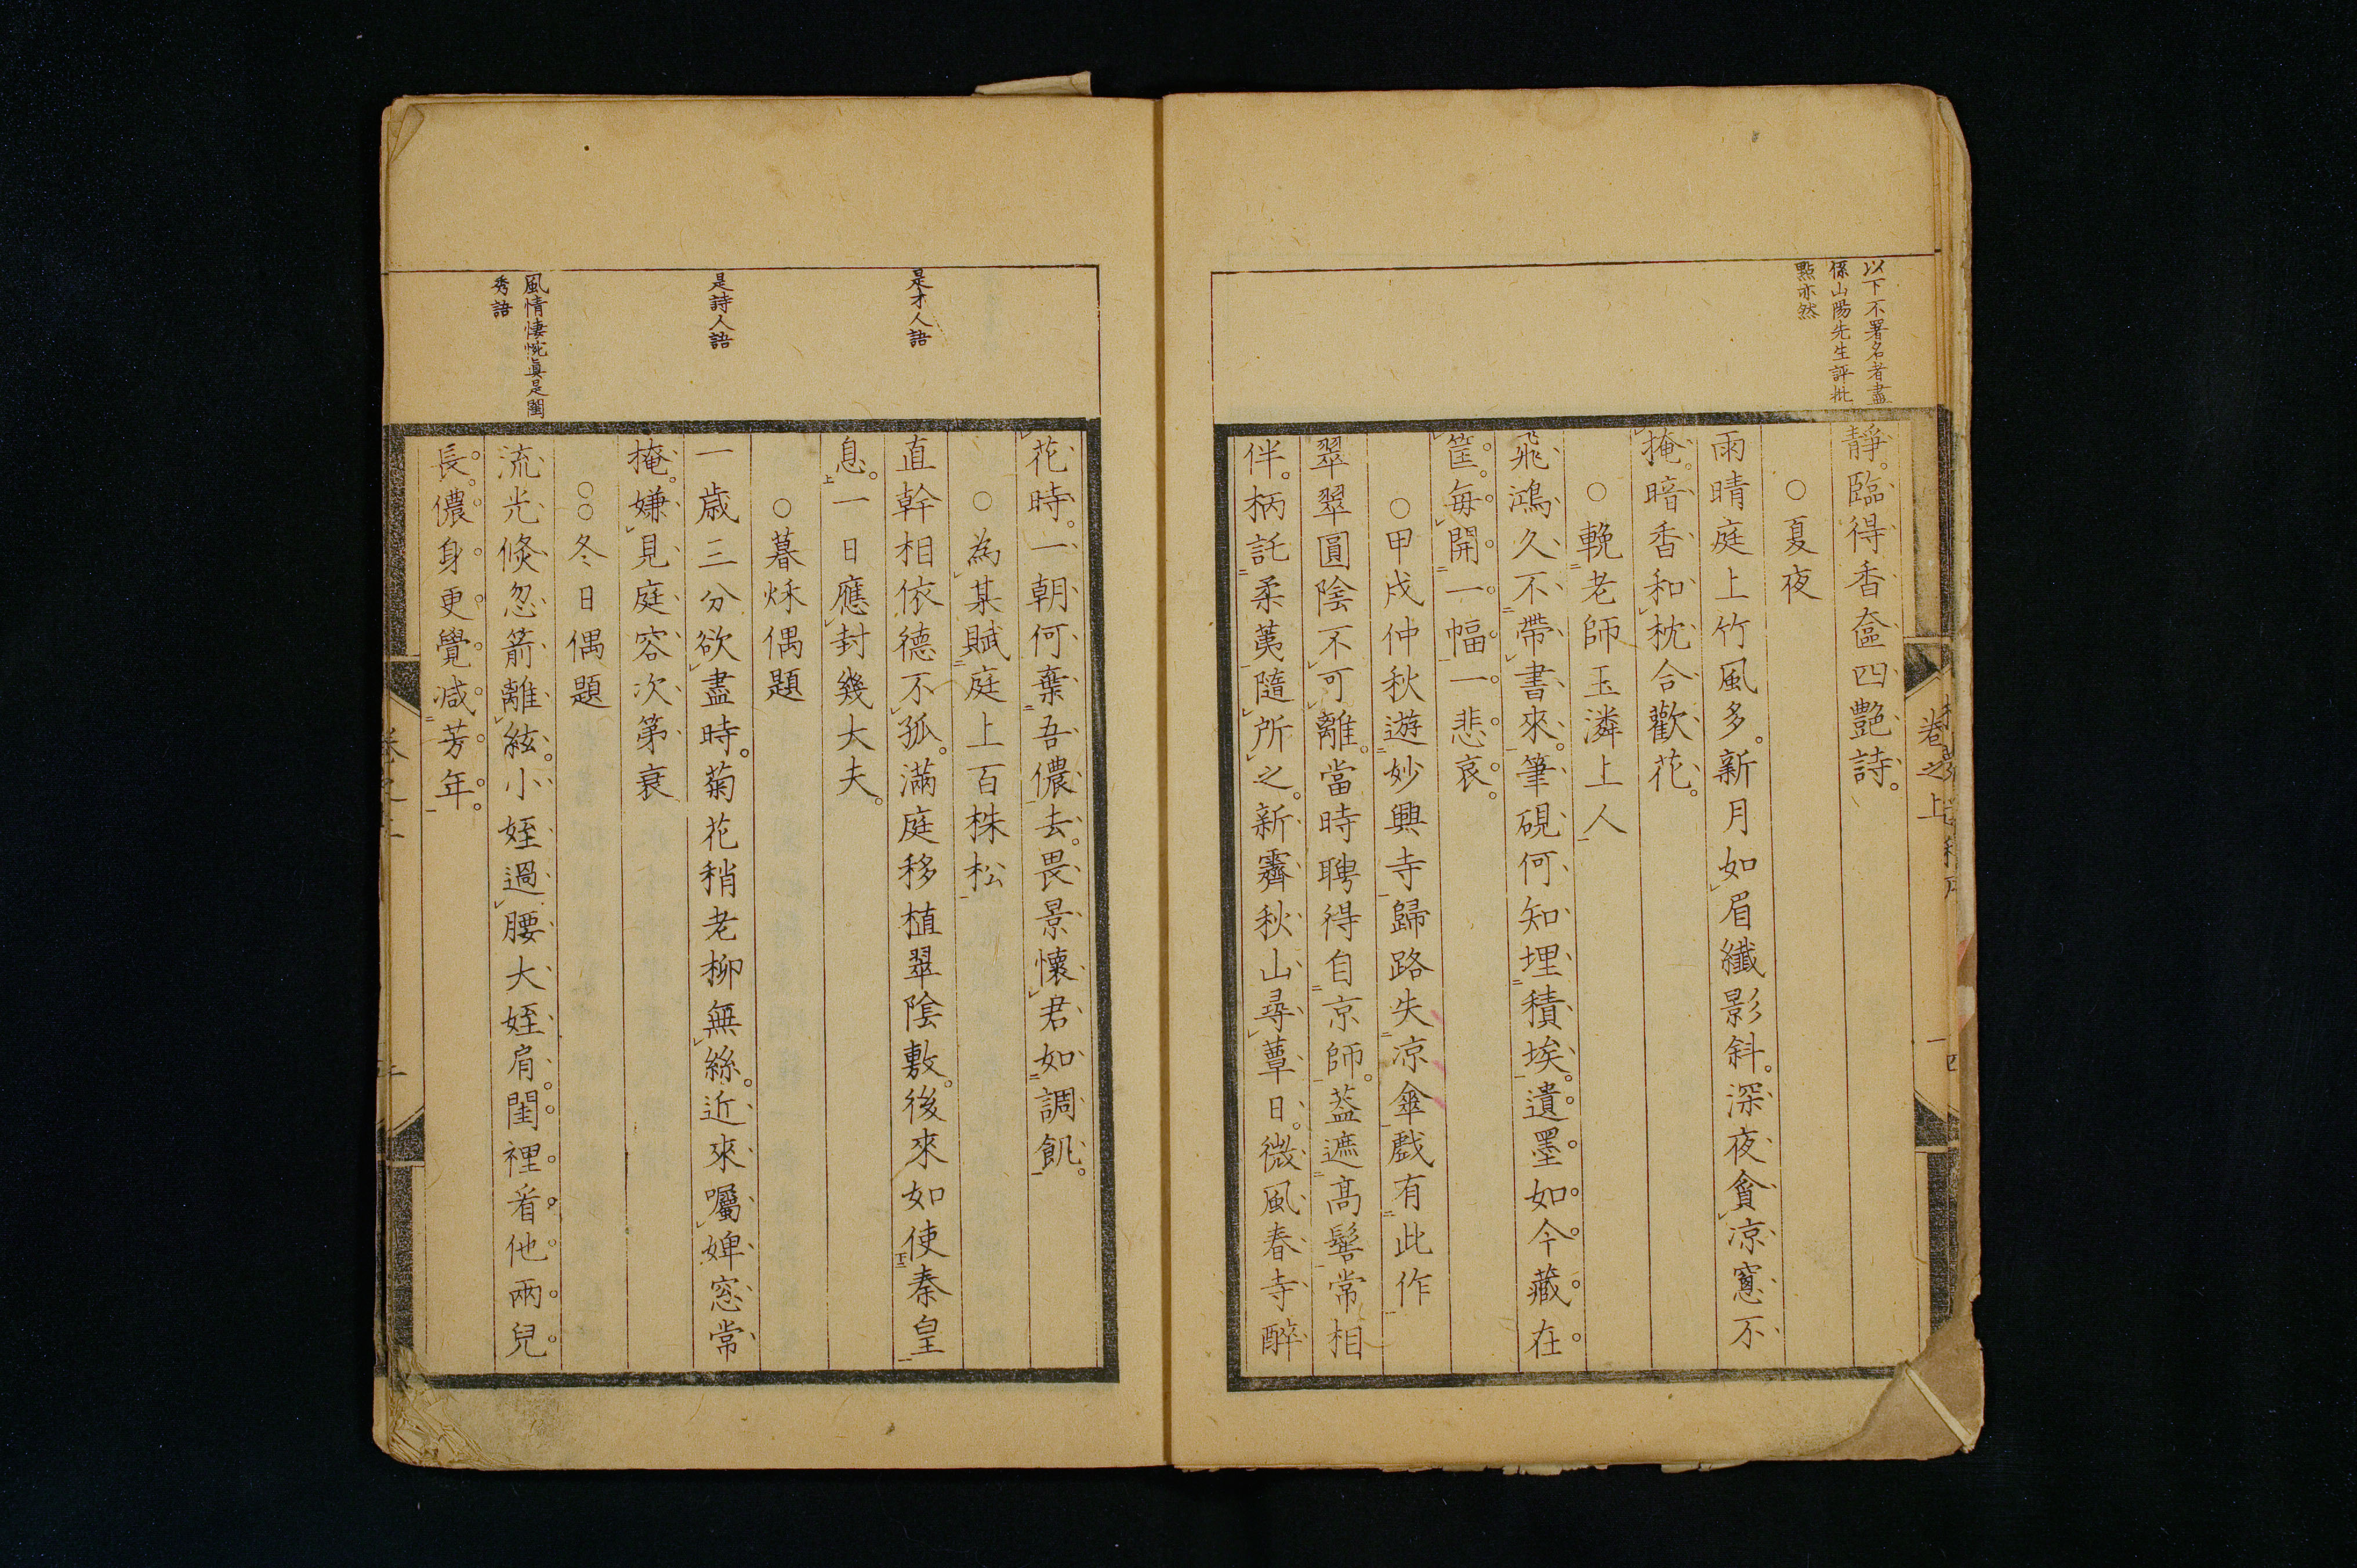 以下不署名者盡
係山陽先生評批
點亦然
靜臨得香奩四艷詩
○夏夜
雨晴庭上竹風多新月如眉纖影斜深夜貪凉窻不
掩暗香和枕合歡花
○輓老師玉潾上人
飛鴻久不帶書來筆硯何知埋積埃遺墨如今藏在
筐每開一幅一悲哀
○甲戌仲秋遊妙興寺歸路失凉傘戲有此作
翠翠圓陰不可離當時聘得自京師蓋遮高髻常相
伴柄託柔荑隨所之新霽秋山尋蕈日微風春寺醉
卷之上
花時一朝何棄吾儂去畏景懷君如調飢
○為某賦庭上百株松
直幹相依德不孤滿庭移植翠陰敷後來如使秦皇
息一日應封幾大夫
○暮秌偶題
一歲三分欲盡時菊花稍老柳無絲近來囑婢窓常
掩嫌見庭容次第衰
○○冬日偶題
流光倐忽箭離絃小姪過腰大姪肩閨裡看他兩兒
長儂身更覺減芳年
是才人語
是詩人語
風情悽惋眞是閨
秀語